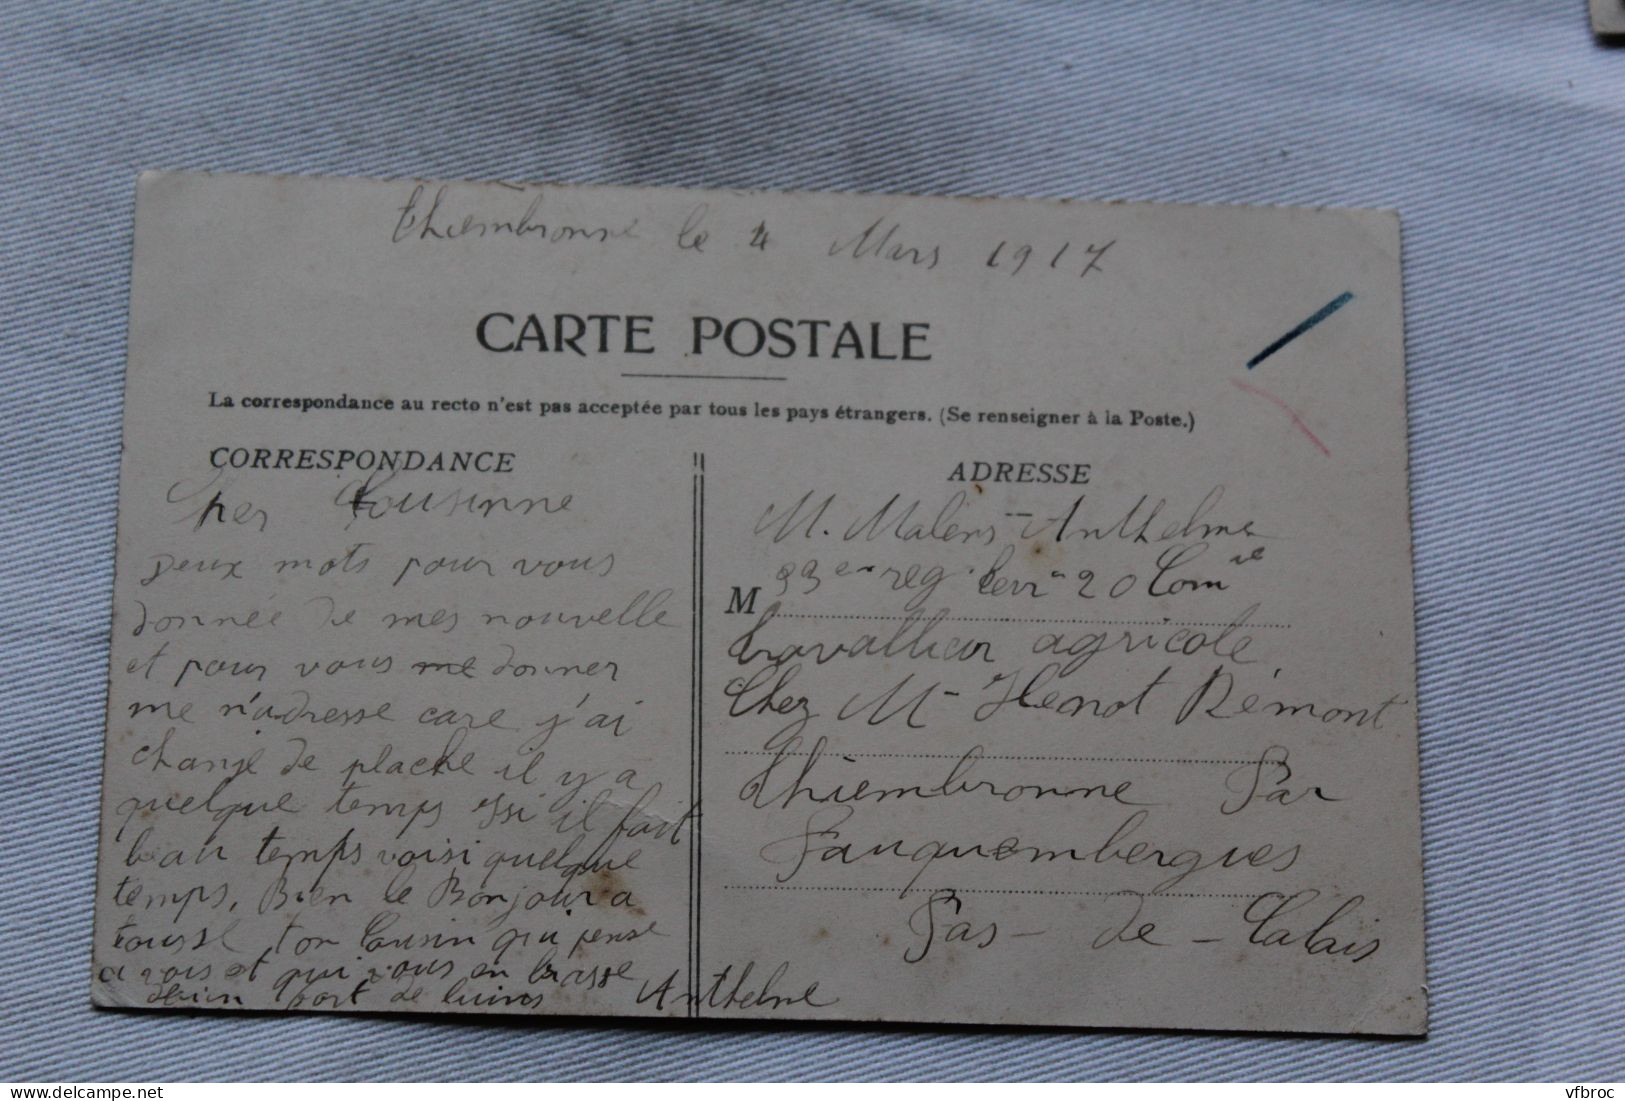 thiembronne le 4 Mars 1917
CARTE POSTALE
La correspondance au recto n'est pas acceptée par tous les pays étrangers. (Se renseigner à la Poste.)
CORRESPONDANCE
Cher Cousinne
deux mots pour vous
donnée de mes nouvelle
et pour vous me donner
me n'adresse care j'ai
change de plache il y a
quelque temps issi il fait
beau temps voisi quelque
temps. Bien le Bonjour a
tousse ton Cousin qui pense
a vous et qui vous en brasse
de luins Anthelme
ADRESSE
M. Malens Anthelme
M 93 reg 20 Com
travallieur agricole
Chez Mr Henot Rémont
thiembronne Par
Fauquembergues
Pas-de-Calais
vfbroc